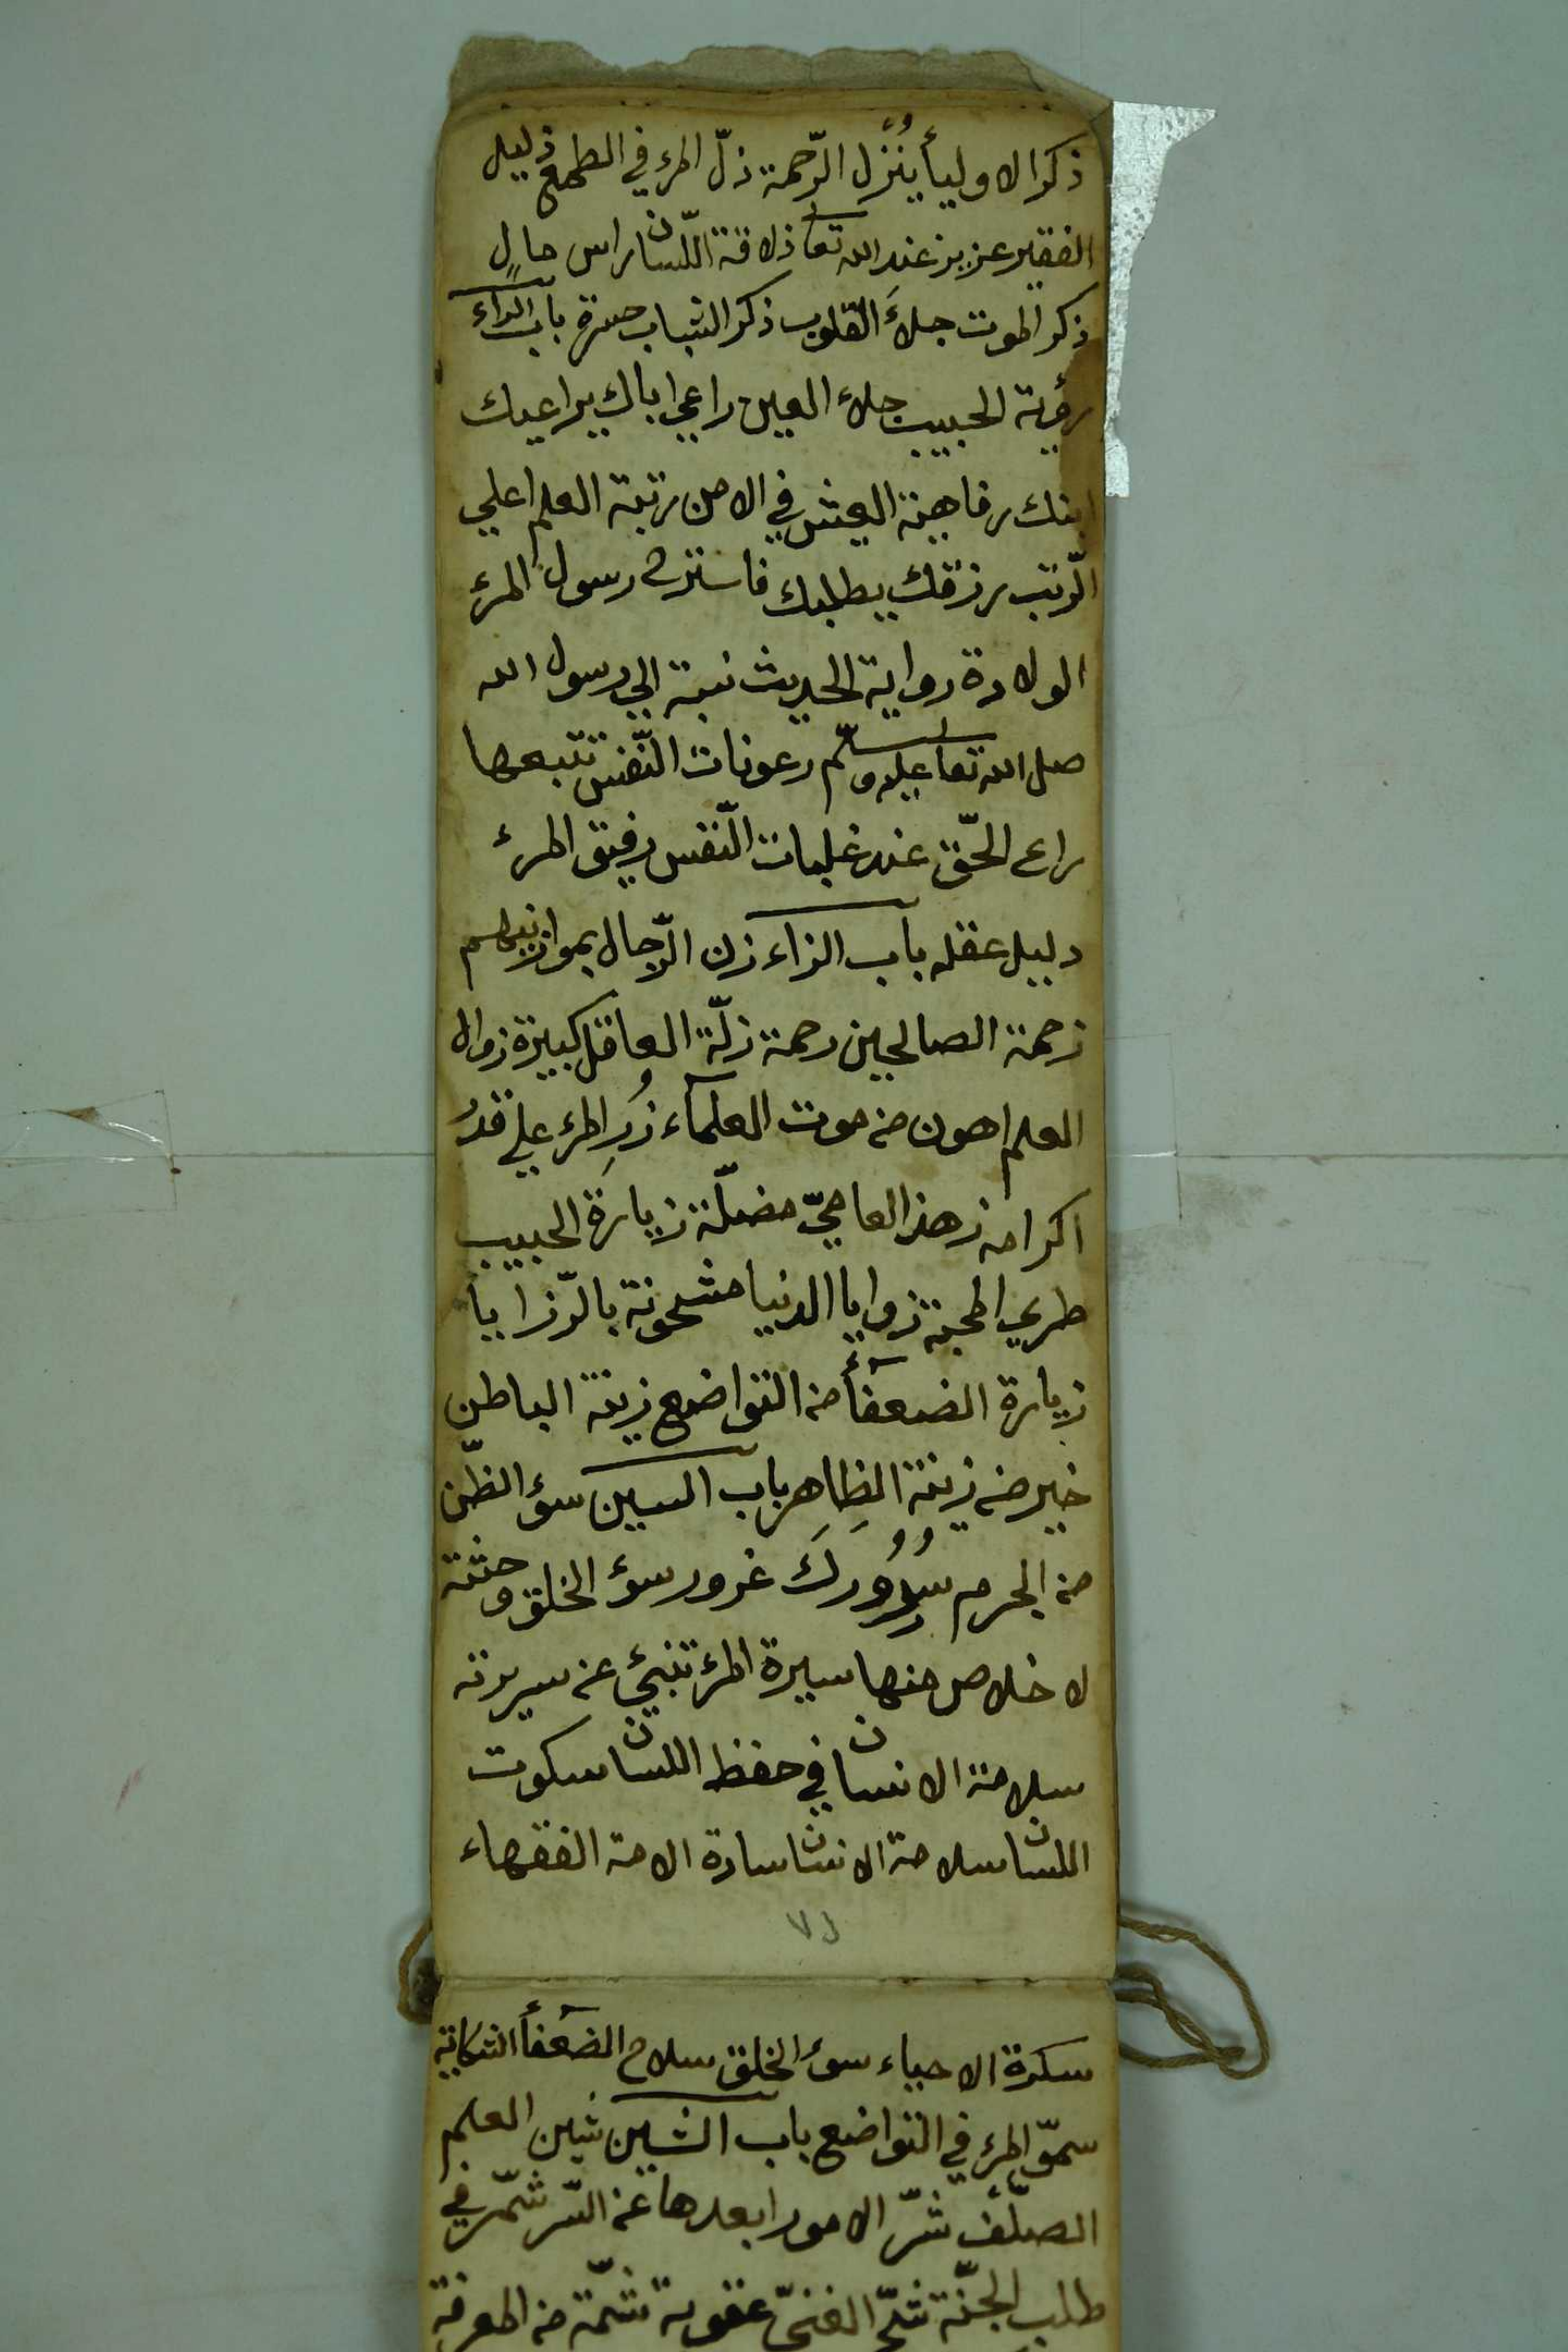 ذكر الاوليأ يُنَزِّل الرّحمة ذلّ المرء في الطمع ذليل
الفقير عزيز عند الله تعا ذلاقة اللّسان راس مالٍ
ذكر الموت جلأَ القلوب ذكر الشباب حسرة باب الراء
رؤية الحبيب جلاء العين راعي اباك يراعيك
ابنك رفاهية العيش في الامن رتبة العلم اعلي
الرّتب رزقك يطلبك فاسترح رسول المرء
الولادة رواية الحديث نسبة الي رسول الله
صل الله تعا عليه وسلّم رعونات النّفس تتبعها
راع الحّق عند غلبات النّفس رفيق المرء
دليل عقله باب الزاء زن الرّجال بموازينهم
زحمة الصالحين رحمة زلّة العاقل كبيرة زوال
العلم اهون من موت العلمآء زُرِ المرء علي قدر
اكرامه زهد العاميّ مضلّة زيارة الحبيب
طري المحبة زوايا الدنيا مشحونة بالرّزايا
زيارة الضعفآء من التواضع زينة الباطن
خير من زينة الظاهر باب السين سؤ الظّن
من الجرم سُرُورك غرور سوء الخلق وحشة
لا خلاص منها سيرة المرء تنبئ عن سريرته
سلامة الانسان في حفظ اللسان سكوت
اللسان سلامة الانسان سادة الامة الفقهاء
٧٦
سكرة الاحياء سوء الخلق سلاح الضعفآء الشكاية
سموّ المرء في التواضع باب الشين شين العلم
الصلّف شرّ الامور ابعدها عن السّر شمّر في
طلب الجنّة شحّ الغنيّ عقوبة شمّة من المعرفة